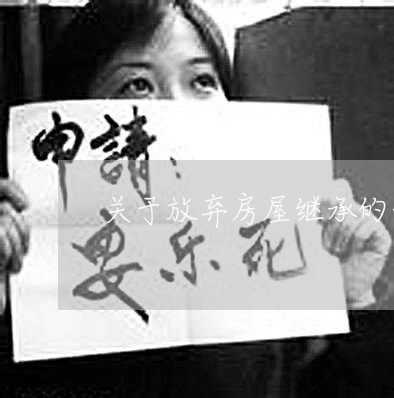 申請：
关于放弃房屋继承的
安乐死